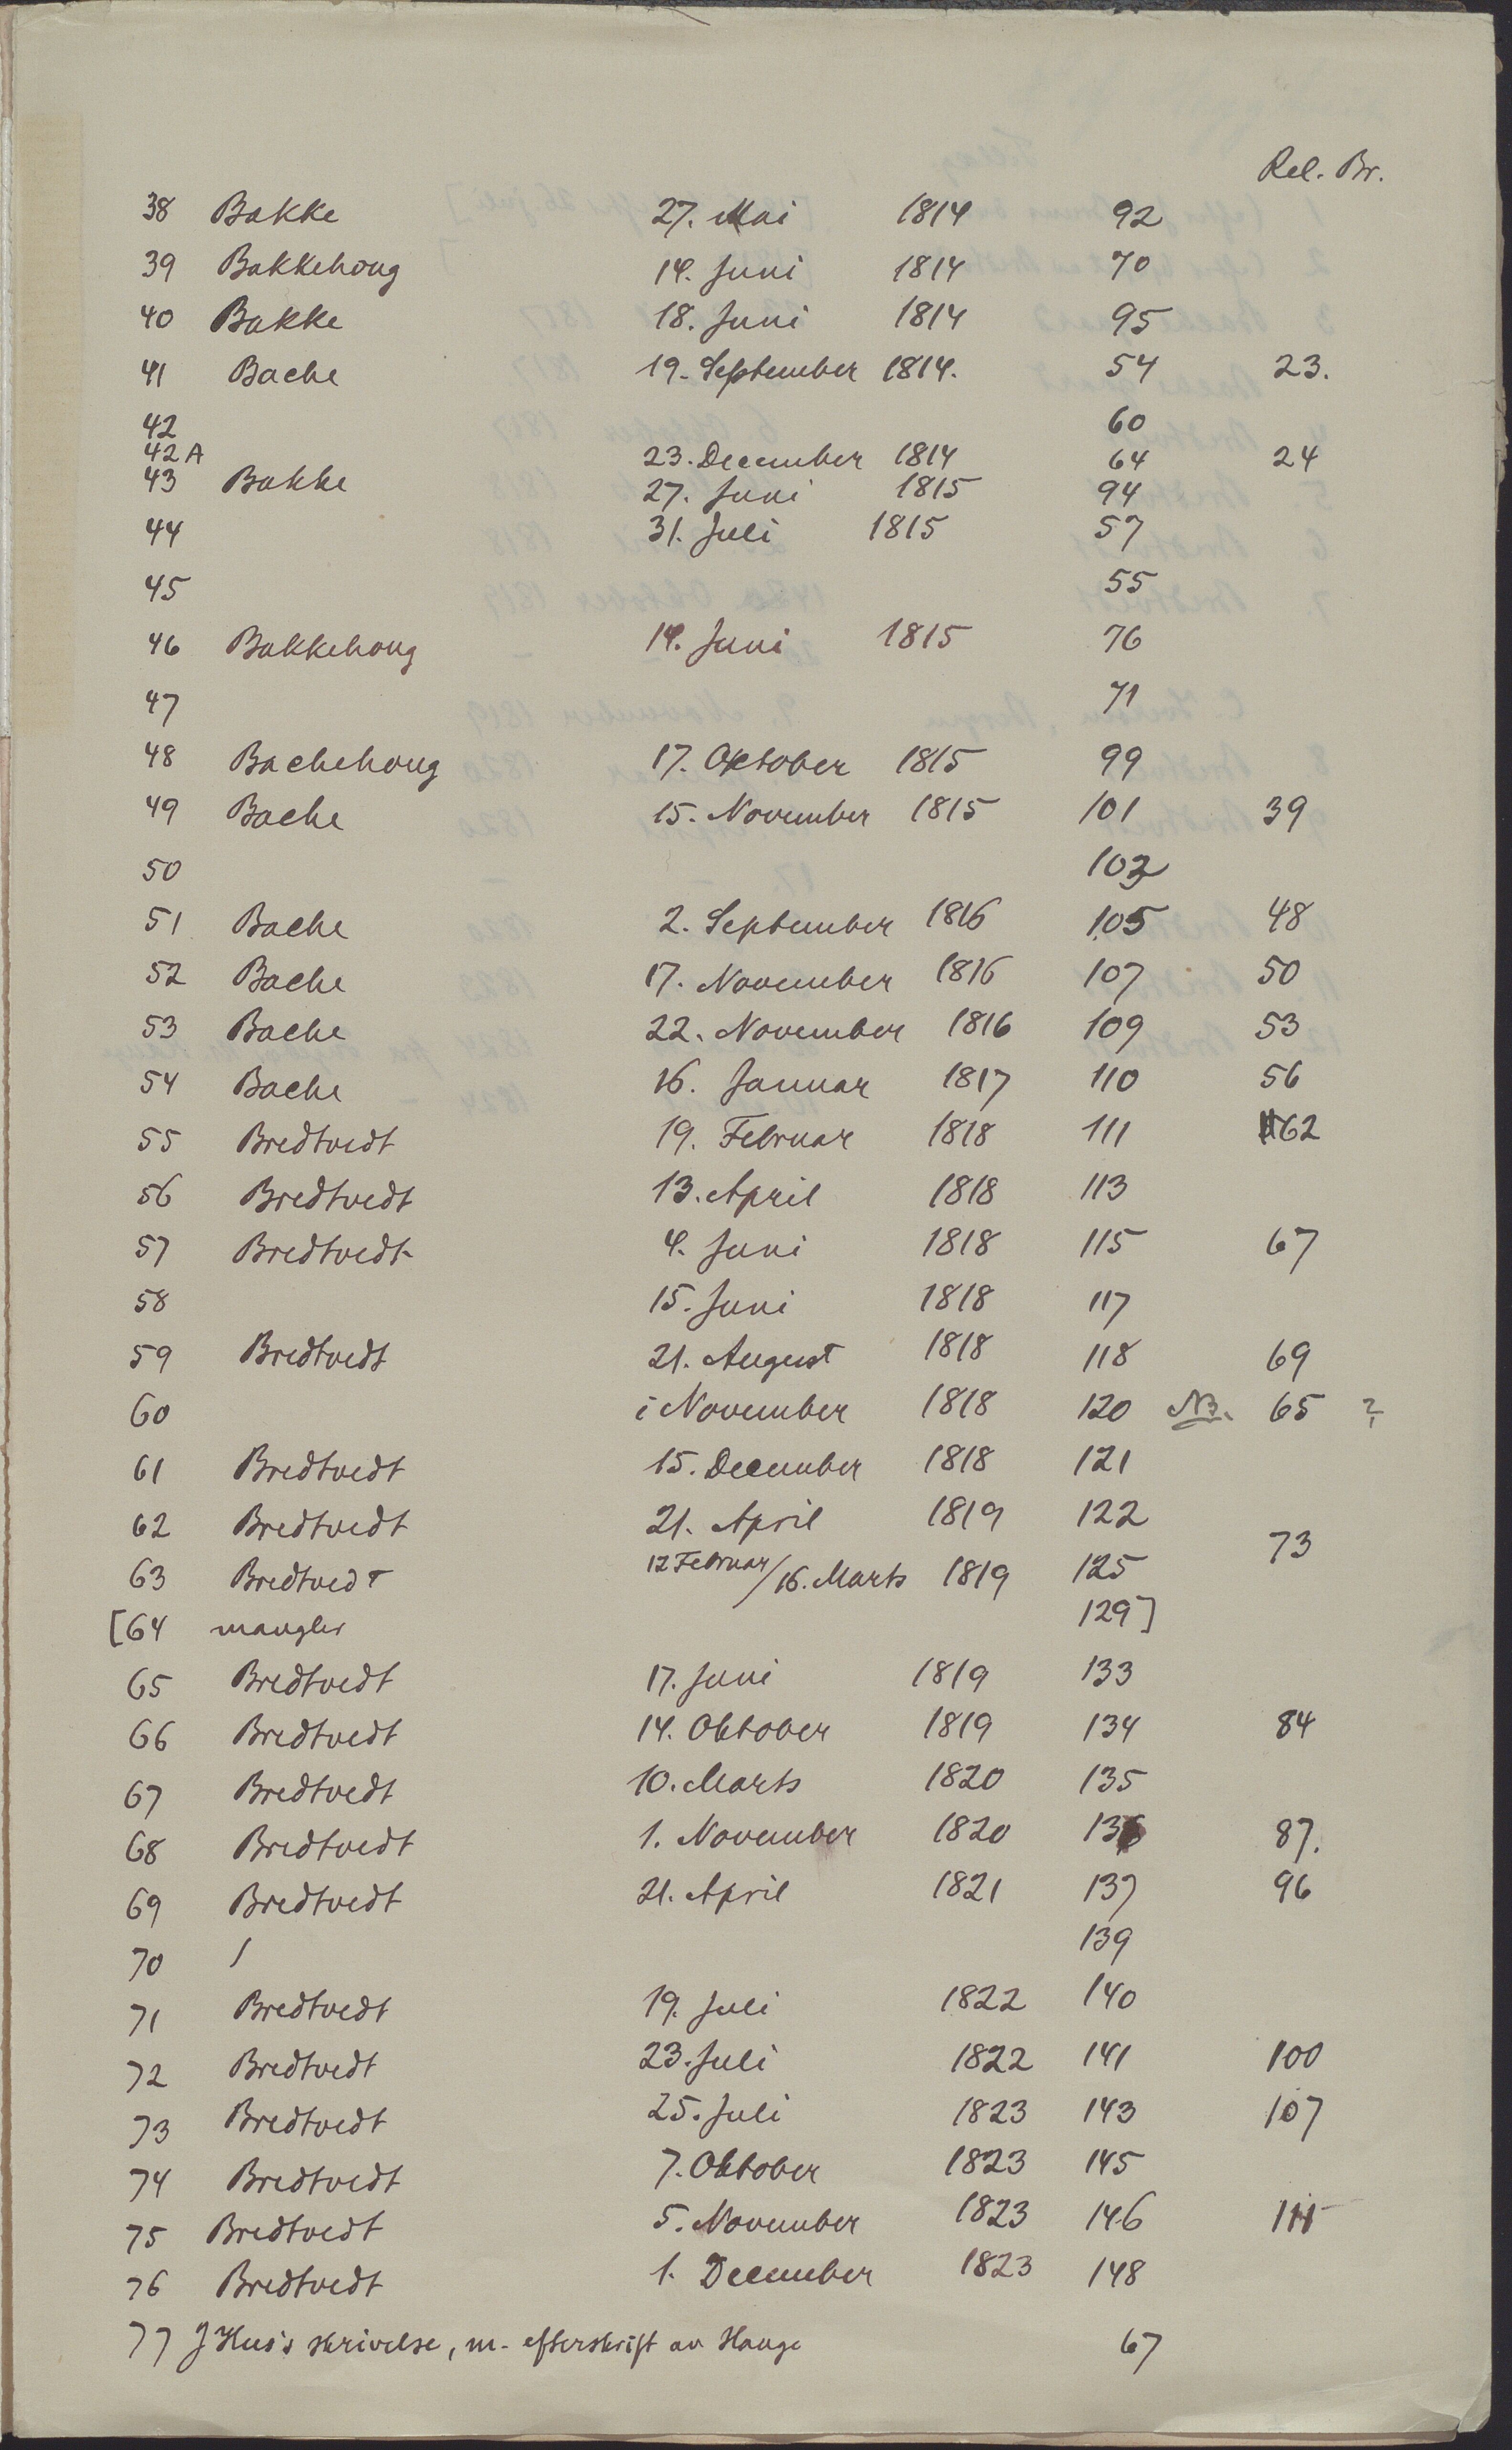 Rel. Br.
38 Bakke 27. Mai 1814 92
39 Bakkehoug 14. Juni 1814 70
40 Bakke 18. Juni 1814 95
41 Bache 19. September 1814. 54 23.
42 60
42A 23. December 1814 64 24
43 Bakke 27. Juni 1815 94
44 31. Juli 1815 57
45 55
46 Bakkehoug 14. Juni 1815 76
47 71
48 Bachehoug 17. Oktober 1815 99
49 Bache 15. November 1815 101 39
50 103
51 Bache 2. September 1816 105 48
52 Bache 17. November 1816 107 50
53 Bache 22. November 1816 109 53
54 Bache 16. Januar 1817 110 56
55 Bredtvedt 19. Februar 1818 111 62
56 Bredtvedt 13. April 1818 113
57 Bredtvedt 4. Juni 1818 115 67
58 15. Juni 1818 117
59 Bredtvedt 21. August 1818 118 69
60 i November 1818 120 NB. 65 ?
61 Bredtvedt 15. December 1818 121
62 Bredtvedt 21. April 1819 122
73
63 Bredtvedt 12 Februar/16. Marts 1819 125
[64 mangler 129]
65 Bredtvedt 17. Juni 1819 133
66 Bredtvedt 14. Oktober 1819 134 84
67 Bredtvedt 10. Marts 1820 135
68 Bredtvedt 1. November 1820 136 87.
69 Bredtvedt 21. April 1821 137 96
70 / 139
71 Bredtvedt 19. Juli 1822 140
72 Bredtvedt 23. Juli 1822 141 100
73 Bredtvedt 25. Juli 1823 143 107
74 Bredtvedt 7. Oktober 1823 145
75 Bredtvedt 5. November 1823 146
76 Bredtvedt 1. December 1823 148
77 J Hus's skrivelse, m. efterskrift av Hauge 67